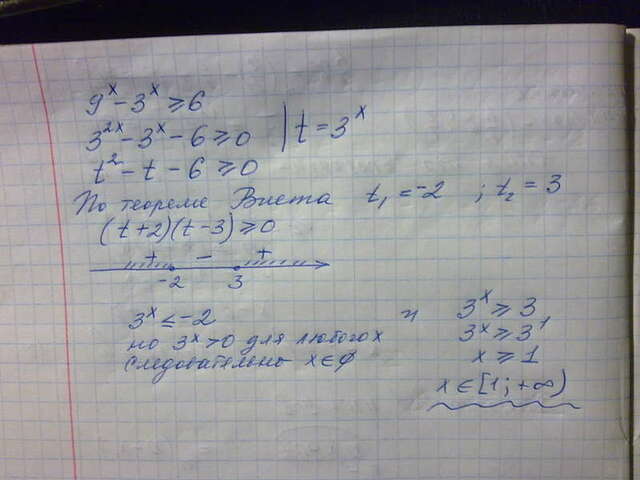 9^x - 3^x ≥ 6
3^2x - 3^x - 6 ≥ 0 | t = 3^x
t^2 - t - 6 ≥ 0
По теореме Виета t₁ = -2 ; t₂ = 3
(t+2)(t-3) ≥ 0
+ - +
-2 3
3^x ≤ -2
но 3^x > 0 для любого x
следовательно x ∈ ∅
и
3^x ≥ 3
3^x ≥ 3^1
x ≥ 1
x ∈ [1; +∞)